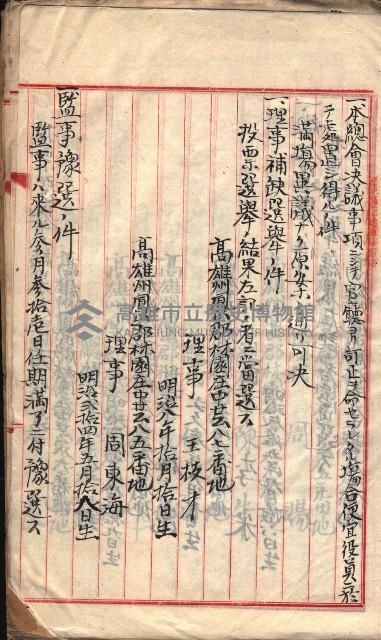 一、本總會決議事項ニシテ官廳ヨリ訂正ヲ命セラレタル場合便宜役員ニ於
テ處置シ得ルノ件
滿場異議ナク原案ノ通リ可決
一、理事補缺選舉ノ件
投票選舉ノ結果左記ノ者ニ當選ス
高雄州鳳山郡林園庄中芸八七番地
理事 王枝才
明治八年十月拾日生
高雄州鳳山郡林園庄中芸八五番地
理事 周東海
明治貳拾四年五月拾八日生
一、監事豫選ノ件
監事ハ來ル參月參拾壱日任期滿了ニ付豫選ス
高雄市立歷史博物館
KAOHSIUNG MUSEUM OF HISTORY